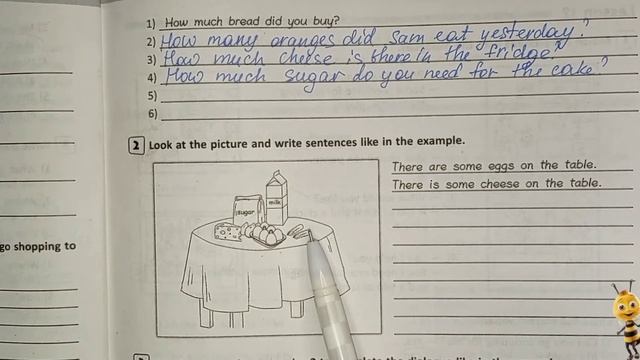 1) How much bread did you buy?
2) How many oranges did Sam eat yesterday?
3) How much cheese is there in the fridge?
4) How much sugar do you need for the cake?
5)
6)
2 Look at the picture and write sentences like in the example.
There are some eggs on the table.
There is some cheese on the table.
sugar
milk
go shopping to